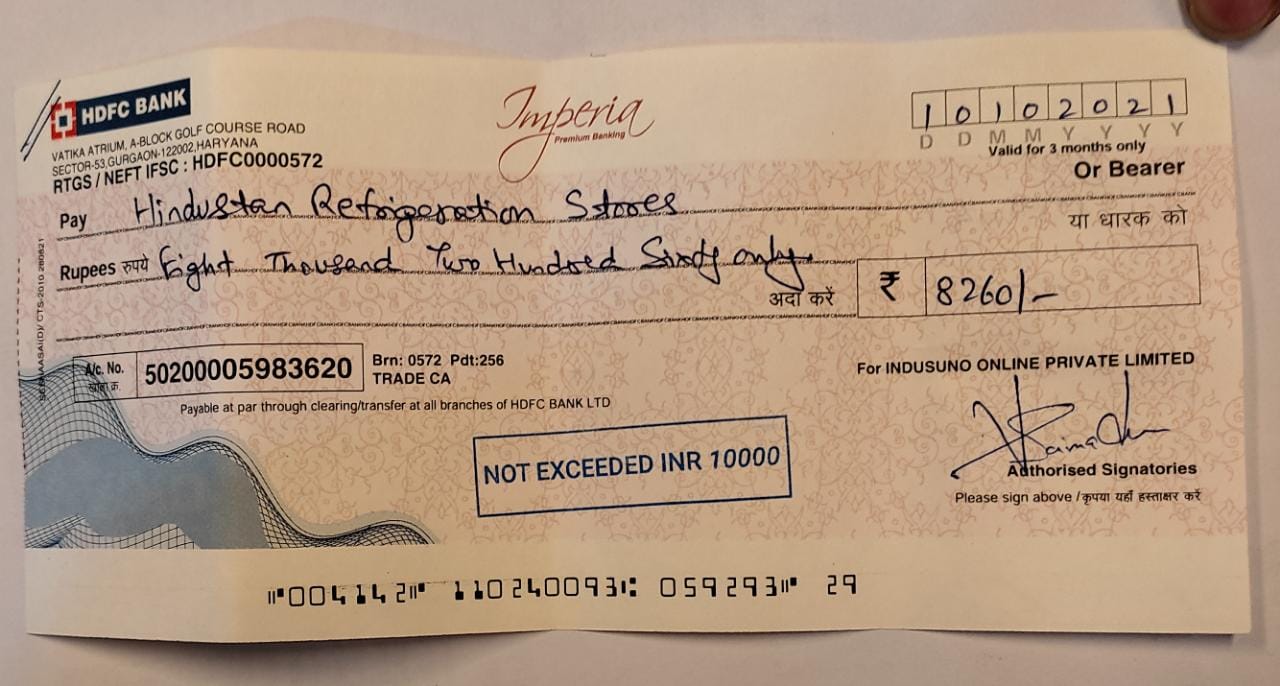 HDFC BANK
VATIKA ATRIUM, A-BLOCK GOLF COURSE ROAD
SECTOR-53,GURGAON-122002,HARYANA
RTGS / NEFT IFSC : HDFC0000572
Imperia
Premium Banking
1 0 1 0 2 0 2 1
D D M M Y Y Y Y
Valid for 3 months only
Or Bearer
Pay Hindustan Refrigeration Stores
या धारक को
Rupees रुपये Eight Thousand Two Hundred Sixty only
अदा करें ₹ 8260/-
A/c. No. 50200005983620
खाता क्र.
Brn: 0572 Pdt:256
TRADE CA
Payable at par through clearing/transfer at all branches of HDFC BANK LTD
NOT EXCEEDED INR 10000
For INDUSUNO ONLINE PRIVATE LIMITED
Authorised Signatories
Please sign above / कृपया यहाँ हस्ताक्षर करें
⑈004142⑈ 110240093⑆ 059293⑈ 29